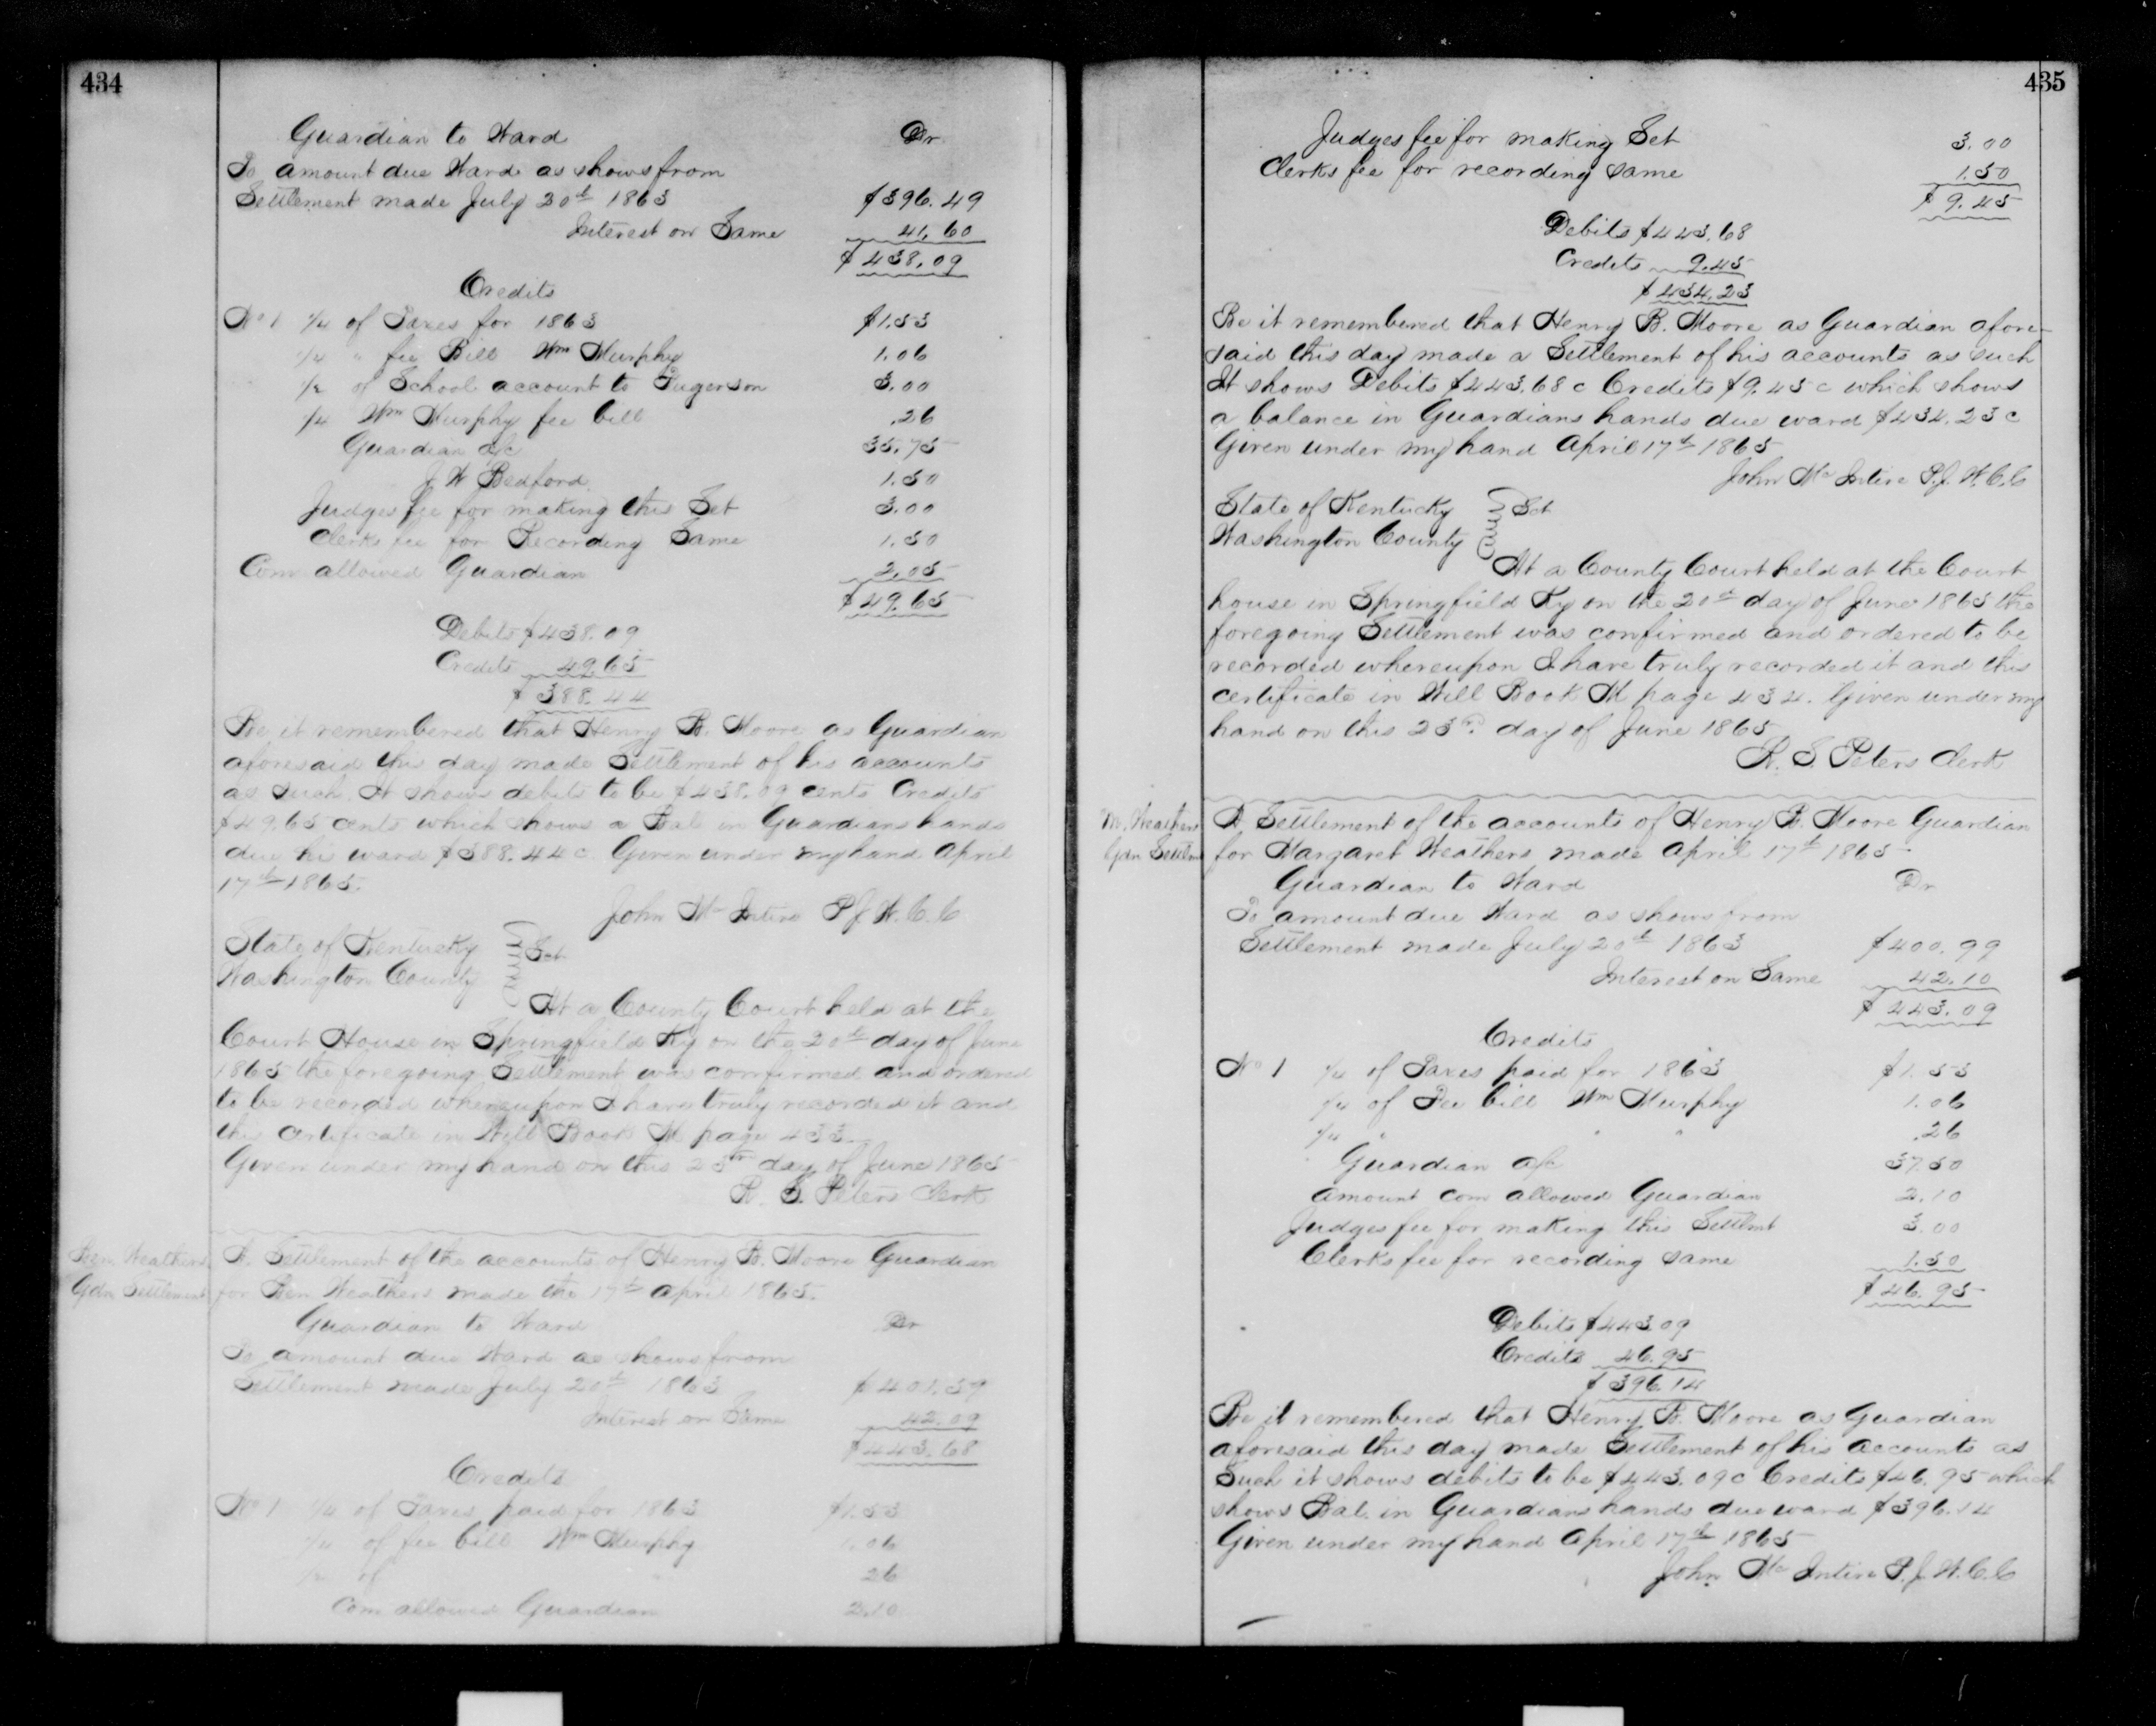 434
Guardian to Ward Dr
To amount due Ward as shows from
Settlement made July 20th 1863 $396.49
Interest on Same 41.60
$438.09
Credits
No 1 1/4 of Taxes for 1863 $1.53
1/4 " fee Bill Wm Murphy 1.06
1/2 of School account to 3.00
1/4 Wm Murphy fee bill .26
Guardian a/c 35.75
J W Bedford 1.50
Judges fee for making this Set 3.00
Clerks fee for Recording Same 1.50
Com allowed Guardian 2.05
$49.65
Debits $438.09
Credits 49.65
$388.44
Be it remembered that Henry B. Moore as Guardian
aforesaid this day made Settlement of his accounts
as such. It shows debits to be $438.09 cents Credits
$49.65 cents which shows a Bal in Guardians hands
due his ward $388.44c Given under my hand April
17th 1865.
John McIntire P J W. C. C
State of Kentucky Sct
Washington County
At a County Court held at the
Court House in Springfield Ky on the 20th day of June
1865 the foregoing Settlement was confirmed and ordered
to be recorded whereupon I have truly recorded it and
this certificate in Will Book M page 433.
Given under my hand on this 23rd day of June 1865
R. S. Peters Clerk
Ben Weathers
Gdn Settlement
A Settlement of the accounts of Henry B. Moore Guardian
for Ben Weathers made the 17th April 1865.
Guardian to Ward Dr
To amount due Ward as shows from
Settlement made July 20th 1863 $401.59
Interest on Same 42.09
$443.68
Credits
No 1 1/4 of Taxes paid for 1863 $1.53
1/4 of fee bill Wm Murphy 1.06
1/4 of " 26
Com allowed Guardian 2.10
435
Judges fee for making Set 3.00
Clerks fee for recording same 1.50
$9.45
Debits $443.68
Credits 9.45
$434.23
Be it remembered that Henry B. Moore as Guardian afore-
said this day made a Settlement of his accounts as such
It shows Debits $443.68c Credits $9.45c which shows
a balance in Guardians hands due ward $434.23c
Given under my hand April 17th 1865
John McIntire P. J. W. C. C
State of Kentucky Sct
Washington County
At a County Court held at the Court
house in Springfield Ky on the 20th day of June 1865 the
foregoing Settlement was confirmed and ordered to be
recorded whereupon I have truly recorded it and this
certificate in Will Book M page 434. Given under my
hand on this 23rd day of June 1865
R. S. Peters Clerk
M. Weathers
Gdn Settlmt
A Settlement of the accounts of Henry B. Moore Guardian
for Margaret Weathers made April 17th 1865
Guardian to Ward Dr
To amount due Ward as shows from
Settlement made July 20th 1863 $400.99
Interest on Same 42.10
$443.09
Credits
No 1 1/4 of Taxes paid for 1863 $1.53
1/4 of Fee bill Wm Murphy 1.06
1/4 " " " .26
Guardian a/c 37.50
amount com allowed Guardian 2.10
Judges fee for making this Settlmt 3.00
Clerks fee for recording same 1.50
$46.95
Debits $443.09
Credits 46.95
$396.14
Be it remembered that Henry B. Moore as Guardian
aforesaid this day made Settlement of his accounts as
Such it shows debits to be $443.09c Credits $46.95 which
shows Bal. in Guardians hands due ward $396.14
Given under my hand April 17th 1865
John McIntire P. J. W. C. C